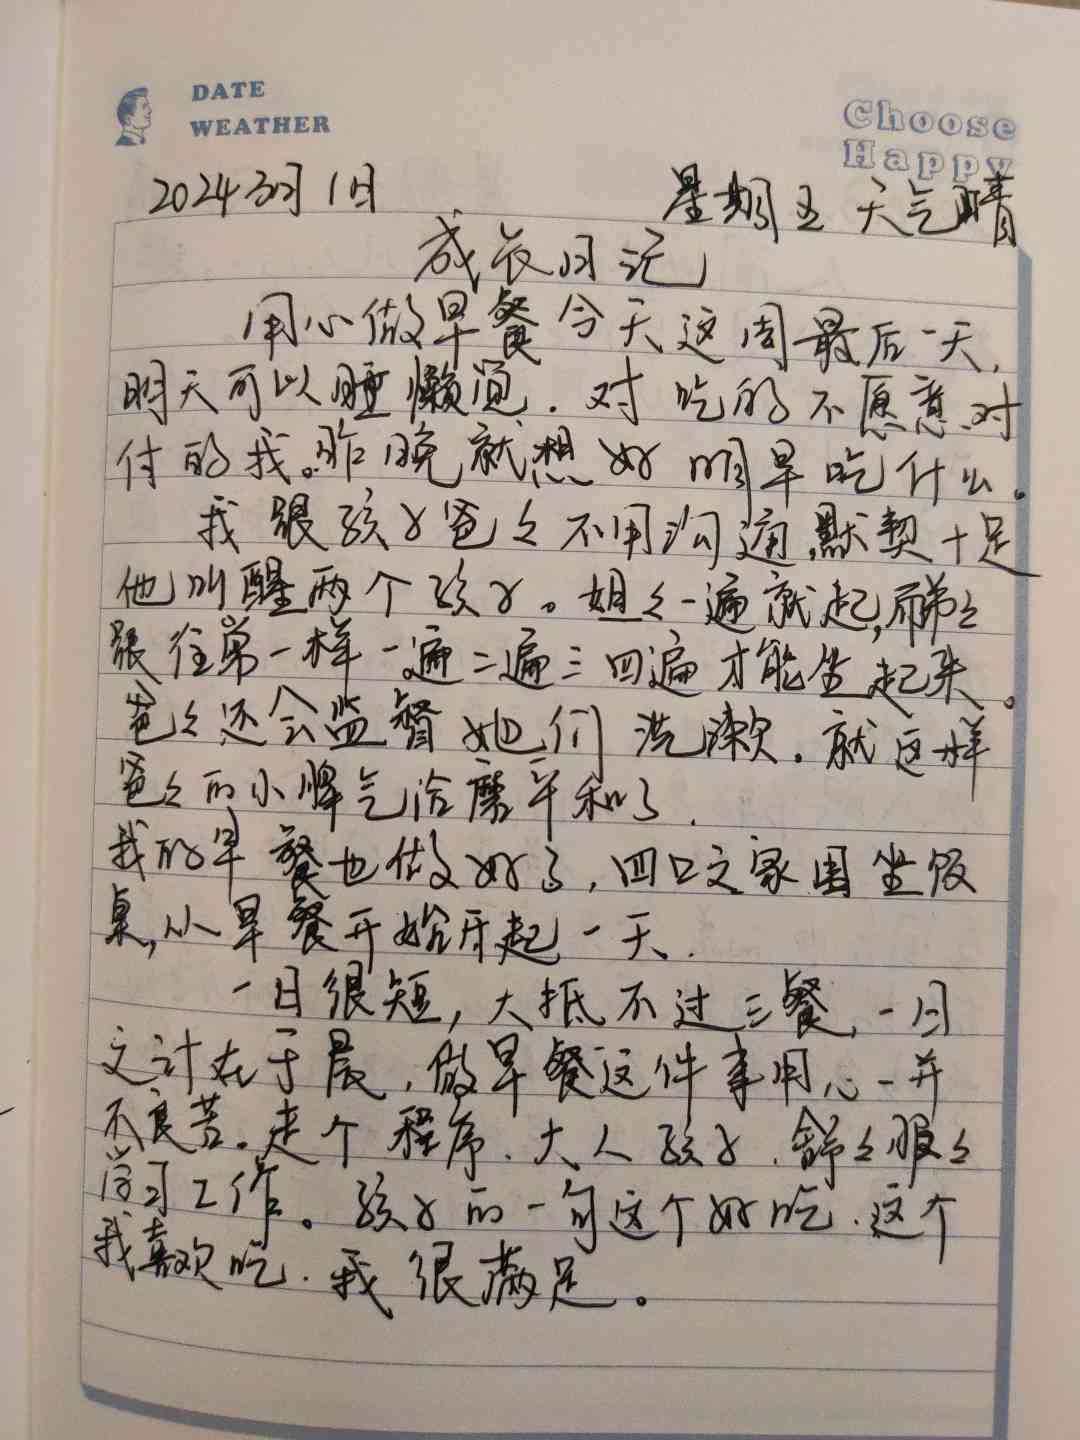 DATE
WEATHER
Choose
Happy
2024 3月1日 星期五 天气晴
成长日记
用心做早餐 今天这周最后一天,
明天可以睡懒觉. 对吃的不愿意对
付的我。昨晚就想好明早吃什么。
我跟孩子爸々不用沟通,默契十足
他叫醒两个孩子。姐々一遍就起,而弟々
跟往常一样一遍二遍三四遍才能坐起来。
爸々还会监督她们洗漱. 就这样
爸々的小脾气给磨平和了.
我的早餐也做好了, 四口之家围坐饭
桌,从早餐开始开起一天.
一日很短, 大抵不过三餐, 一日
之计在于晨, 做早餐这件事用心一并
不辛苦. 走个程序. 大人孩子. 舒々服々
学习工作。孩子的一句这个好吃. 这个
我喜欢吃. 我很满足。